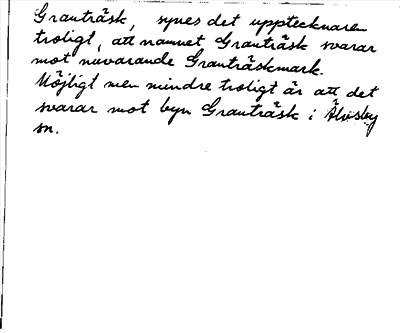 Granträsk, synes det upptecknaren
troligt, att namnet Granträsk svarar
mot nuvarande Granträskmark.
Möjligt men mindre troligt är att det
svarar mot byn Granträsk i Älvsby
sn.